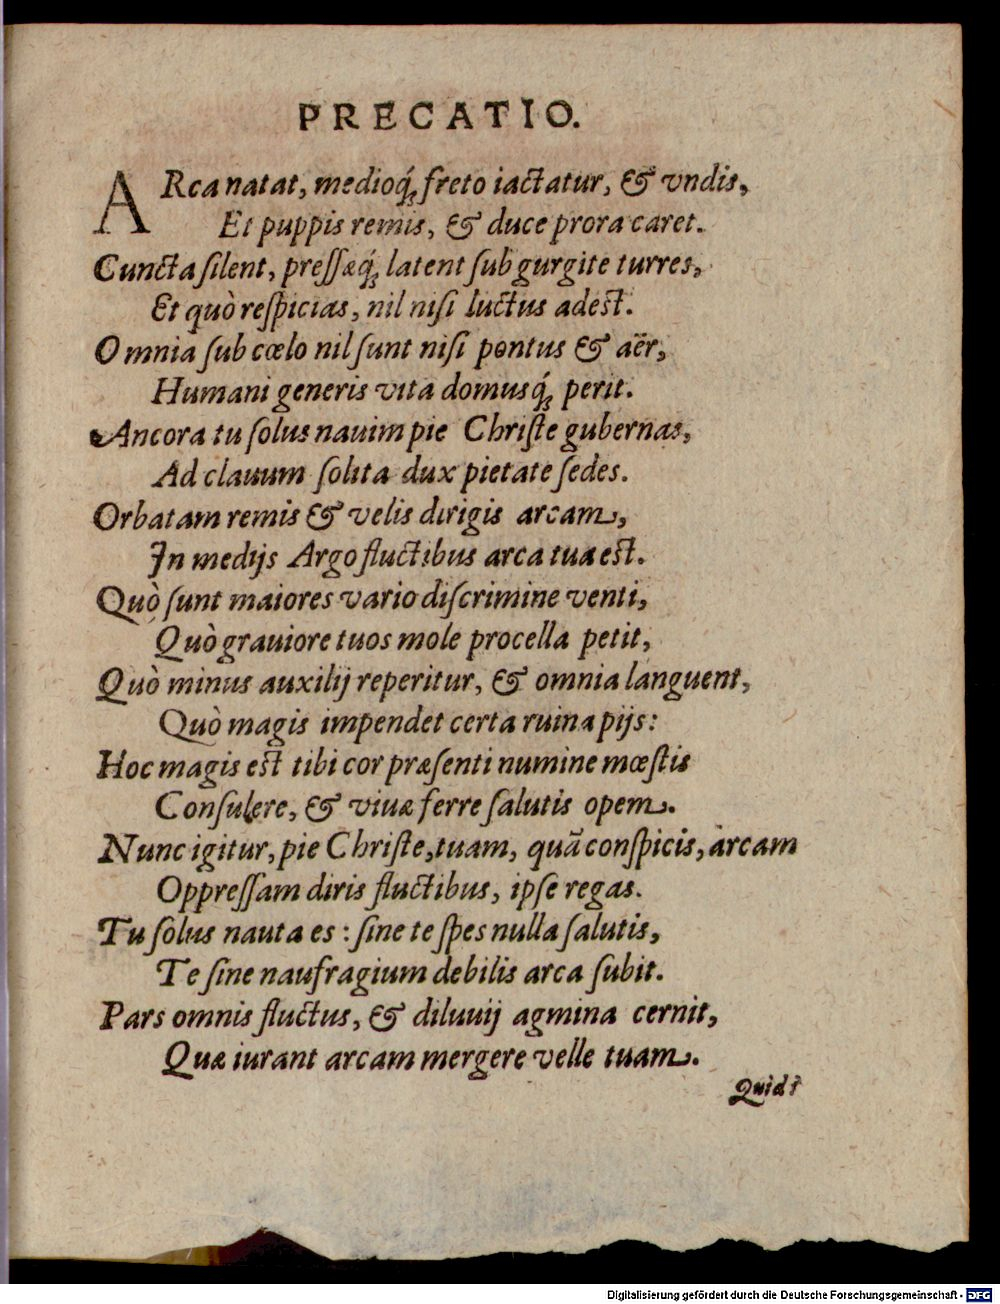 PRECATIO.
ARca natat, medioq́ꝫ freto iactatur, & vndis,
Et puppis remis, & duce prora caret.
Cuncta ſilent, preſſæq́ꝫ latent ſub gurgite turres,
Et quò reſpicias, nil niſi luctus adest.
Omnia ſub cœlo nil ſunt niſi pontus & aër,
Humani generis vita domusq́ꝫ perit.
Ancora tu ſolus nauim pie Chriſte gubernas,
Ad clauum ſolita dux pietate ſedes.
Orbatam remis & velis dirigis arcam,
In medijs Argo fluctibus arca tua est.
Quò ſunt maiores vario diſcrimine venti,
Quò grauiore tuos mole procella petit,
Quò minus auxilij reperitur, & omnia languent,
Quò magis impendet certa ruina pijs:
Hoc magis est tibi cor præſenti numine mœſtis
Conſulere, & viuæ ferre ſalutis opem.
Nunc igitur, pie Chriſte, tuam, quā conſpicis, arcam
Oppreſſam diris fluctibus, ipſe regas.
Tu ſolus nauta es: ſine te ſpes nulla ſalutis,
Te ſine naufragium debilis arca ſubit.
Pars omnis fluctus, & diluuij agmina cernit,
Quæ iurant arcam mergere velle tuam.
Quid?
Digitalisierung gefördert durch die Deutsche Forschungsgemeinschaft - DFG